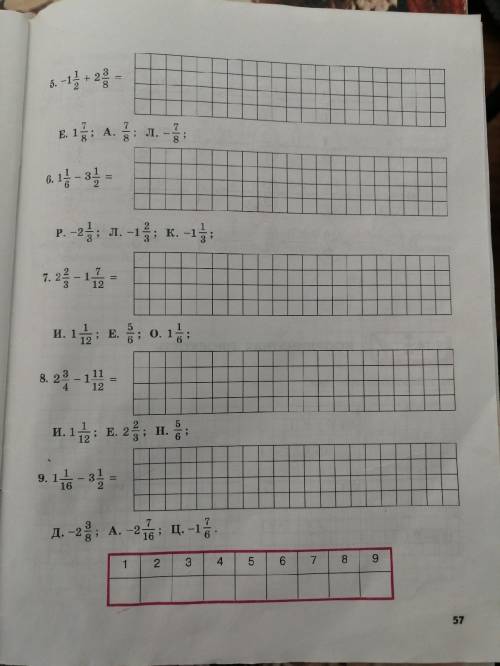 5. -1 1/2 + 2 3/8 =
Е. 1 7/8; А. 7/8; Л. -7/8;
6. 1 1/6 - 3 1/2 =
Р. -2 1/3; Л. -1 2/3; К. -1 1/3;
7. 2 2/3 - 1 7/12 =
И. 1 1/12; Е. 5/6; О. 1 1/6;
8. 2 3/4 - 1 11/12 =
И. 1 1/12; Е. 2 2/3; Н. 5/6;
9. 1 1/16 - 3 1/2 =
Д. -2 3/8; А. -2 7/16; Ц. -1 7/6.
1 2 3 4 5 6 7 8 9
57